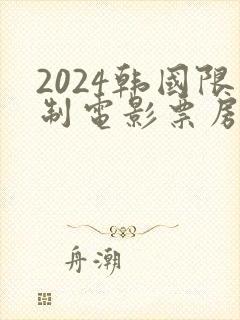 2024韩国限
制电影票房
舟潮